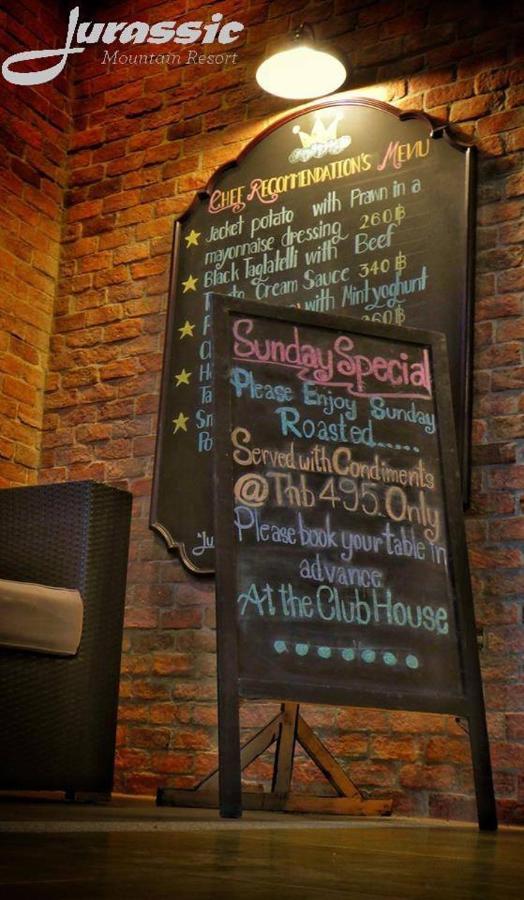 Jurassic
Mountain Resort
Chef Recommendation's Menu
Jacket potato with Prawn in a
mayonnaise dressing 260฿
Black Tagliatelli with Beef
Cream Sauce 340฿
with Mint yoghurt
260฿
Sunday Special
Please Enjoy Sunday
Roasted.....
Served with Condiments
@Thb 495. Only
Please book your table in
advance
At the Club House